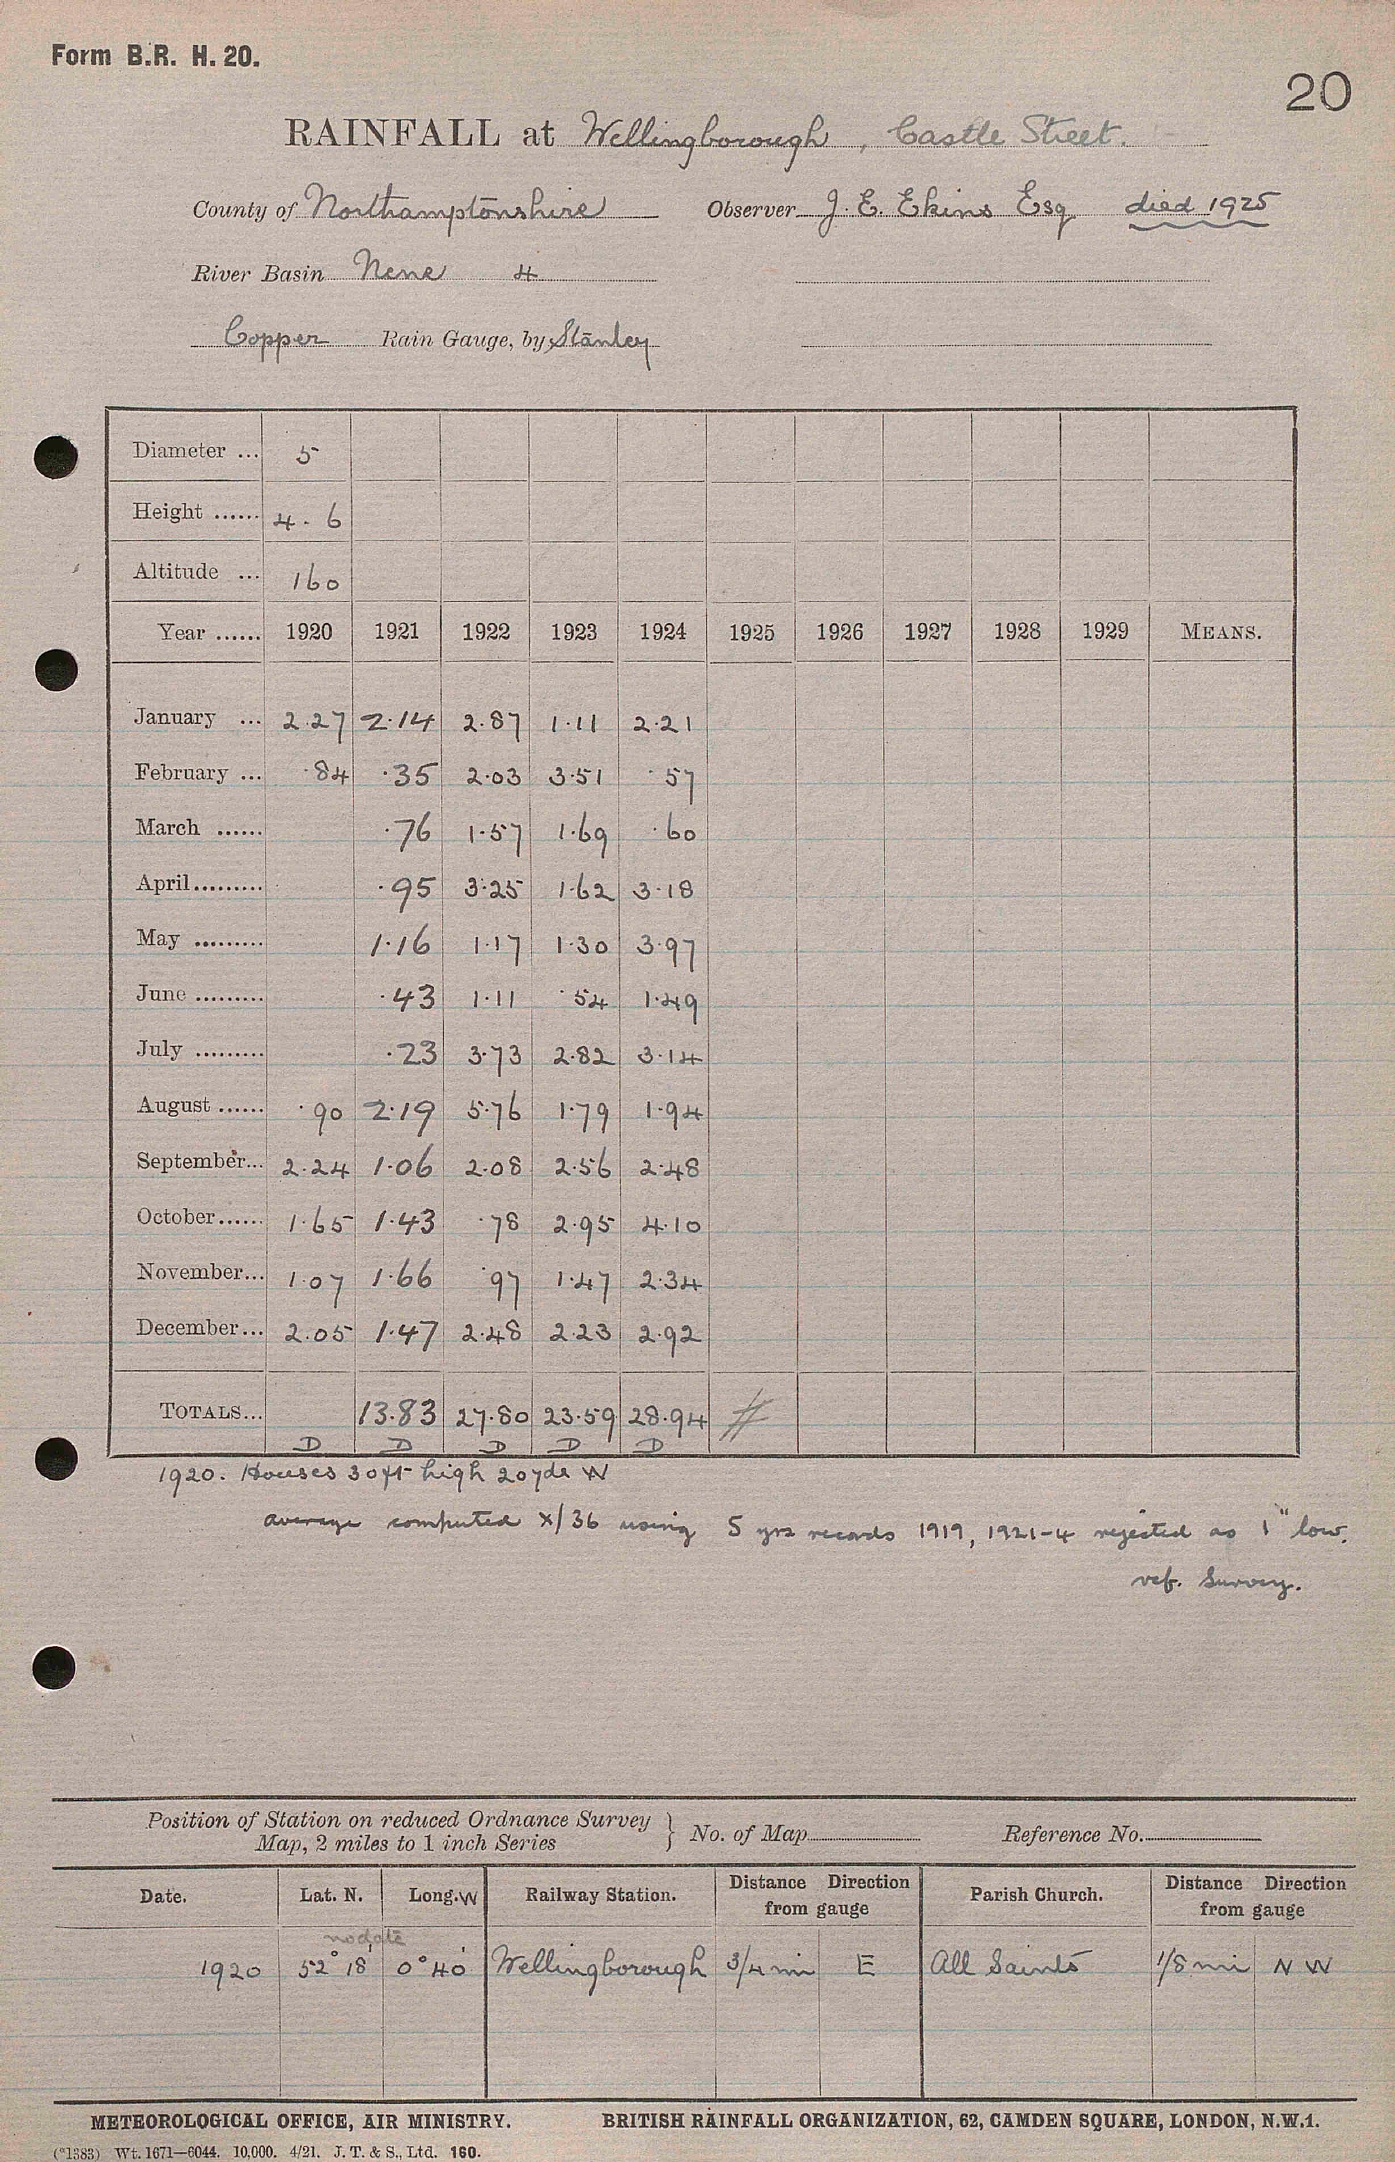 Form B.R. H. 20.
20
RAINFALL at Wellingborough, Castle Street.
County of Northamptonshire Observer J. E. Ekins Esq died 1925
River Basin Nene 4
Copper Rain Gauge, by Stanley
Diameter ... 5
Height ...... 4. 6
Altitude ... 160
Year ...... 1920 1921 1922 1923 1924 1925 1926 1927 1928 1929 MEANS.
January ... 2.27 2.14 2.87 1.11 2.21
February ... .84 .35 2.03 3.51 .57
March ...... .76 1.57 1.69 .60
April......... .95 3.25 1.62 3.18
May ......... 1.16 1.17 1.30 3.97
June ......... .43 1.11 .54 1.49
July ......... .23 3.73 2.82 3.14
August ...... .90 2.19 5.76 1.79 1.94
September... 2.24 1.06 2.08 2.56 2.48
October...... 1.65 1.43 .78 2.95 4.10
November... 1.07 1.66 .97 1.47 2.34
December... 2.05 1.47 2.48 2.23 2.92
TOTALS... 13.83 27.80 23.59 28.94 #
D D D D D
1920. Houses 30ft high 20yds W
average computed x/36 using 5 yrs records 1919, 1921-4 rejected as 1" low.
ref. Survey.
Position of Station on reduced Ordnance Survey
Map, 2 miles to 1 inch Series } No. of Map Reference No.
Date. Lat. N. Long. W Railway Station. Distance Direction from gauge Parish Church. Distance Direction from gauge
no date
1920 52° 18' 0° 40' Wellingborough 3/4 mi E All Saints 1/8 mi N W
METEOROLOGICAL OFFICE, AIR MINISTRY. BRITISH RAINFALL ORGANIZATION, 62, CAMDEN SQUARE, LONDON, N.W.1.
(*1383) Wt. 1671—6044. 10,000. 4/21. J. T. & S., Ltd. 160.